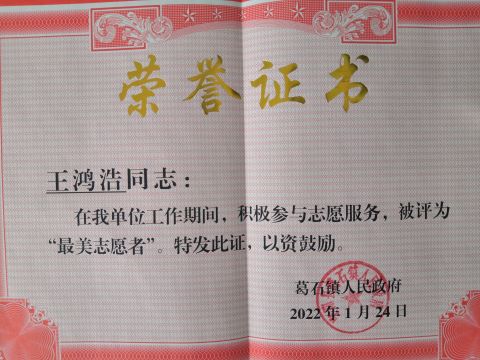 荣誉证书
王鸿浩同志：
在我单位工作期间，积极参与志愿服务，被评为
“最美志愿者”。特发此证，以资鼓励。
葛石镇人民政府
2022年1月24日